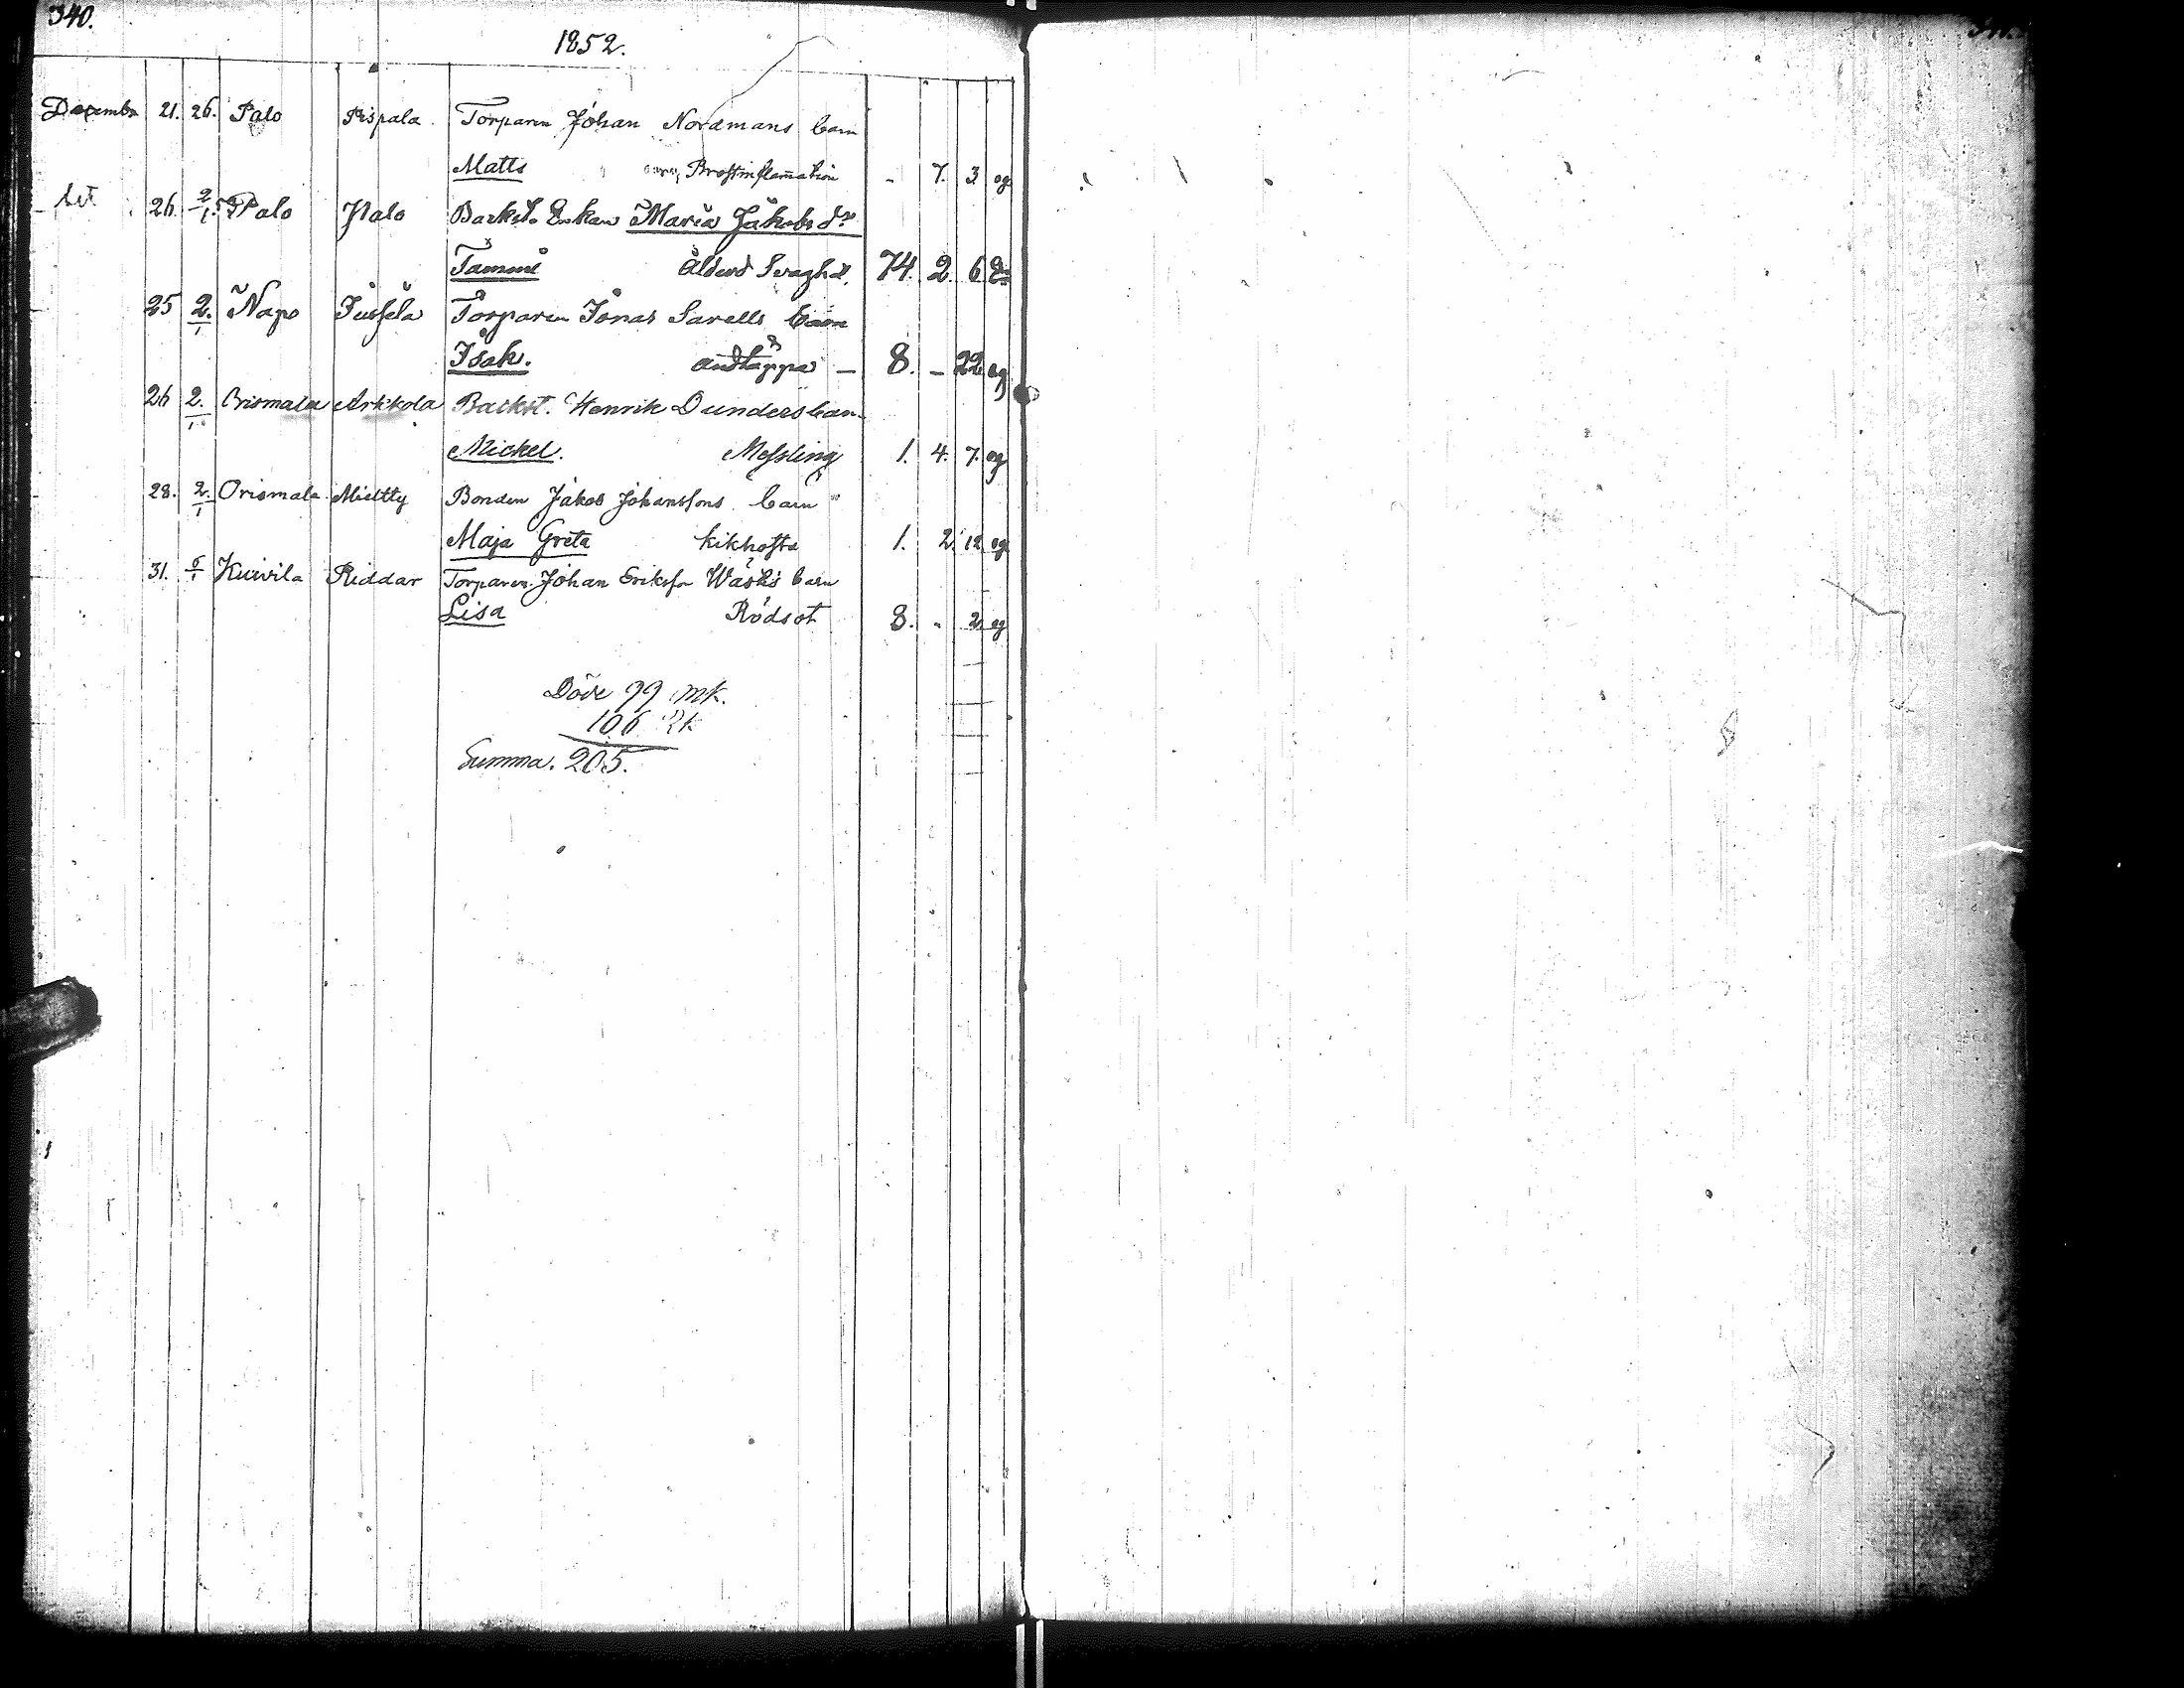 340.
1852.
December 21. 26. Palo Pispala. Torparen Johan Nordmans barn
Matts Bröstinflamation - 7. 3 og
26. 2/1. Palo Palo Backst. Enkan Maria Jakobsdr
Tammi Ålderd. Svaghet. 74. 2. 6 En
25 2./1 Napo Jussila Torparen Jonas Sarells barn
Isak. andtäppa - 8. - 22 og
26 2./1 Orismala Arkkola Backst. Henrik Dunders barn
Mickel. Messling 1. 4. 7. og
28. 2./1 Orismala Mieltty Bonden Jakob Johanssons barn
Maja Greta kikhosta 1. 2. 12 og
31. 6/1 Kuivila Riddar Torparen Johan Eriksson Wäshi barn
Lisa Rödsot 8. - 2. og
Döde 99 mk.
106 Qk
Summa. 205.